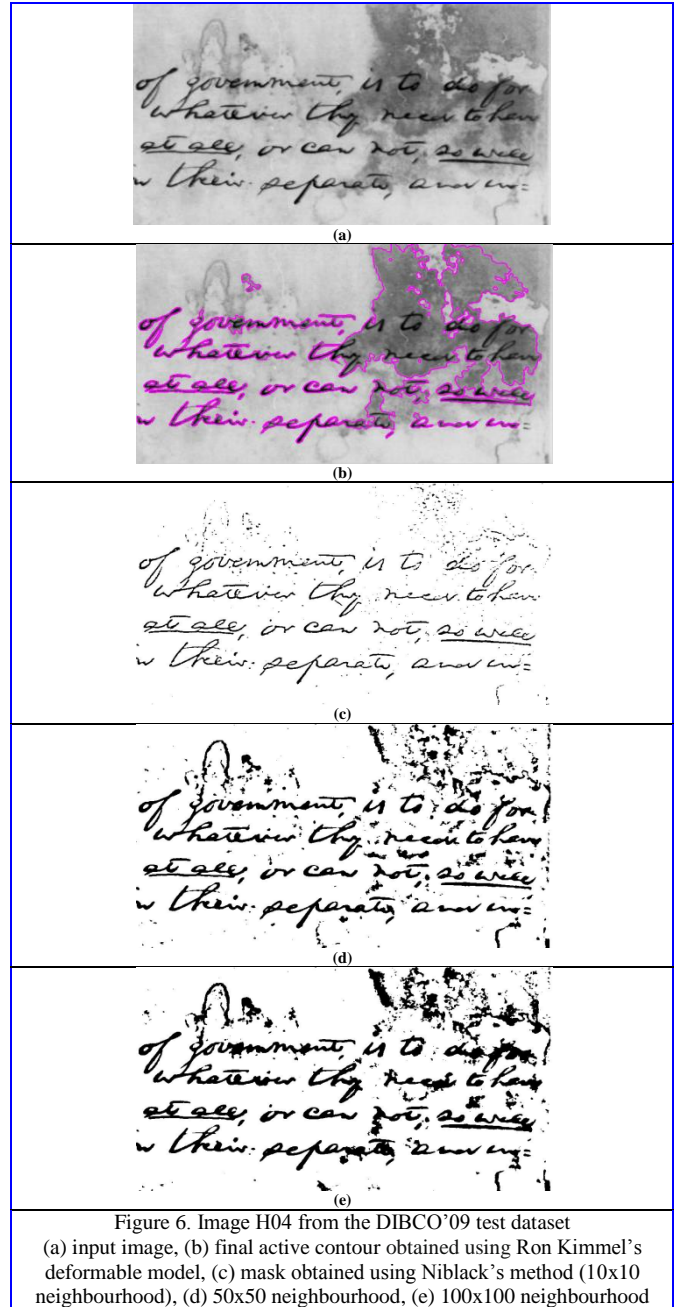 of government, is to do for
whatever thy need to have
at all, or can not, so well
their separate, and in=
(a)
of government, is to do for
whatever thy need to have
at all, or can not, so well
their separate, and in=
(b)
of government, is to do for
whatever thy need to have
at all, or can not, so well
their separate, and in=
(c)
of government, is to do for
whatever thy need to have
at all, or can not, so well
their separate, and in=
(d)
of government, is to do for
whatever thy need to have
at all, or can not, so well
their separate, and in=
(e)
Figure 6. Image H04 from the DIBCO’09 test dataset
(a) input image, (b) final active contour obtained using Ron Kimmel’s
deformable model, (c) mask obtained using Niblack’s method (10x10
neighbourhood), (d) 50x50 neighbourhood, (e) 100x100 neighbourhood